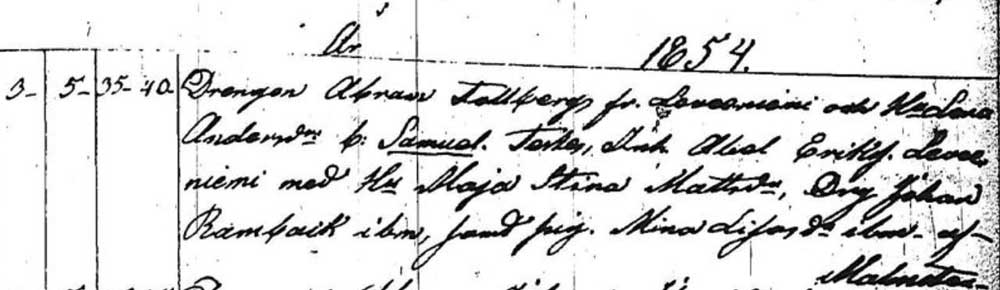 År 1854.
3- 5- 35- 40- Drengen Abram Tollberg fr. Lovosniemi och Hu Lena
Andersdr b: Samuel. Test., Ink. Abel Eriks. Lovos-
niemi med Hu Maja Stina Mattsdr, Dry Johan
Rambaik ibm, samt pig. Mina Lisasdr ibm- af